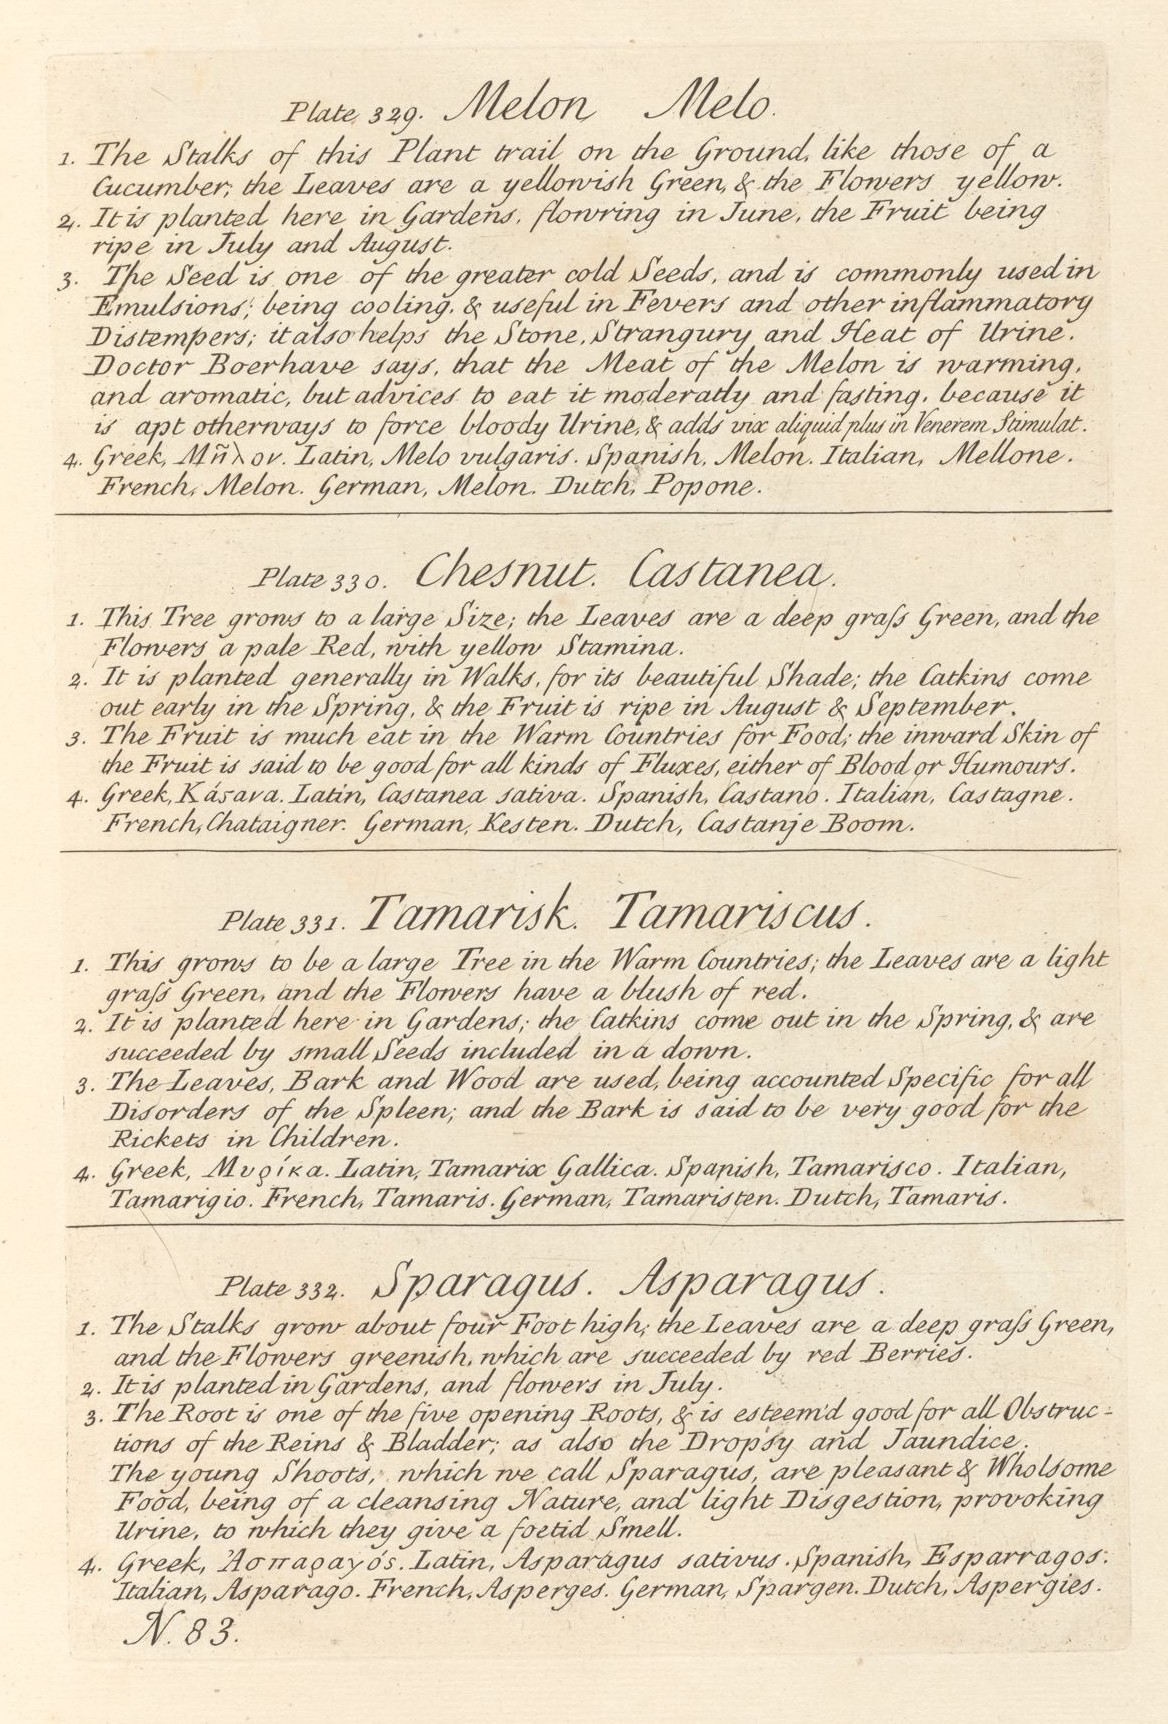 Plate 329. Melon Melo.
1. The Stalks of this Plant trail on the Ground, like those of a
Cucumber; the Leaves are a yellowish Green, & the Flowers yellow.
2. It is planted here in Gardens, flowring in June, the Fruit being
ripe in July and August.
3. The Seed is one of the greater cold Seeds, and is commonly used in
Emulsions, being cooling, & useful in Fevers and other inflammatory
Distempers; it also helps the Stone, Strangury and Heat of Urine.
Doctor Boerhave says, that the Meat of the Melon is warming,
and aromatic, but advices to eat it moderatly and fasting, because it
is apt otherways to force bloody Urine, & adds vix aliquid plus in Venerem Stimulat.
4. Greek, Μῆλον. Latin, Melo vulgaris. Spanish, Melon. Italian, Mellone.
French, Melon. German, Melon. Dutch, Popone.
Plate 330. Chesnut. Castanea.
1. This Tree grows to a large Size; the Leaves are a deep graſs Green, and the
Flowers a pale Red, with yellow Stamina.
2. It is planted generally in Walks, for its beautiful Shade; the Catkins come
out early in the Spring, & the Fruit is ripe in August & September.
3. The Fruit is much eat in the Warm Countries for Food; the inward Skin of
the Fruit is said to be good for all kinds of Fluxes, either of Blood or Humours.
4. Greek, Κάϛανα. Latin, Castanea sativa. Spanish, Castano. Italian, Castagne.
French, Chataigner. German, Kesten. Dutch, Castanje Boom.
Plate 331. Tamarisk. Tamariscus.
1. This grows to be a large Tree in the Warm Countries; the Leaves are a light
graſs Green, and the Flowers have a blush of red.
2. It is planted here in Gardens; the Catkins come out in the Spring, & are
succeeded by small Seeds included in a down.
3. The Leaves, Bark and Wood are used, being accounted Specific for all
Disorders of the Spleen; and the Bark is said to be very good for the
Rickets in Children.
4. Greek, Μυρίκα. Latin, Tamarix Gallica. Spanish, Tamarisco. Italian,
Tamarigio. French, Tamaris. German, Tamaristen. Dutch, Tamaris.
Plate 332. Sparagus. Asparagus.
1. The Stalks grow about four Foot high; the Leaves are a deep graſs Green,
and the Flowers greenish, which are succeeded by red Berries.
2. It is planted in Gardens, and flowers in July.
3. The Root is one of the five opening Roots, & is esteem'd good for all Obstruc-
tions of the Reins & Bladder; as also the Dropsy and Jaundice.
The young Shoots, which we call Sparagus, are pleasant & Wholsome
Food, being of a cleansing Nature, and light Disgestion, provoking
Urine, to which they give a foetid Smell.
4. Greek, Ἀσπαραγός. Latin, Asparagus sativus. Spanish, Esparragos.
Italian, Asparago. French, Asperges. German, Spargen. Dutch, Aspergies.
N. 83.